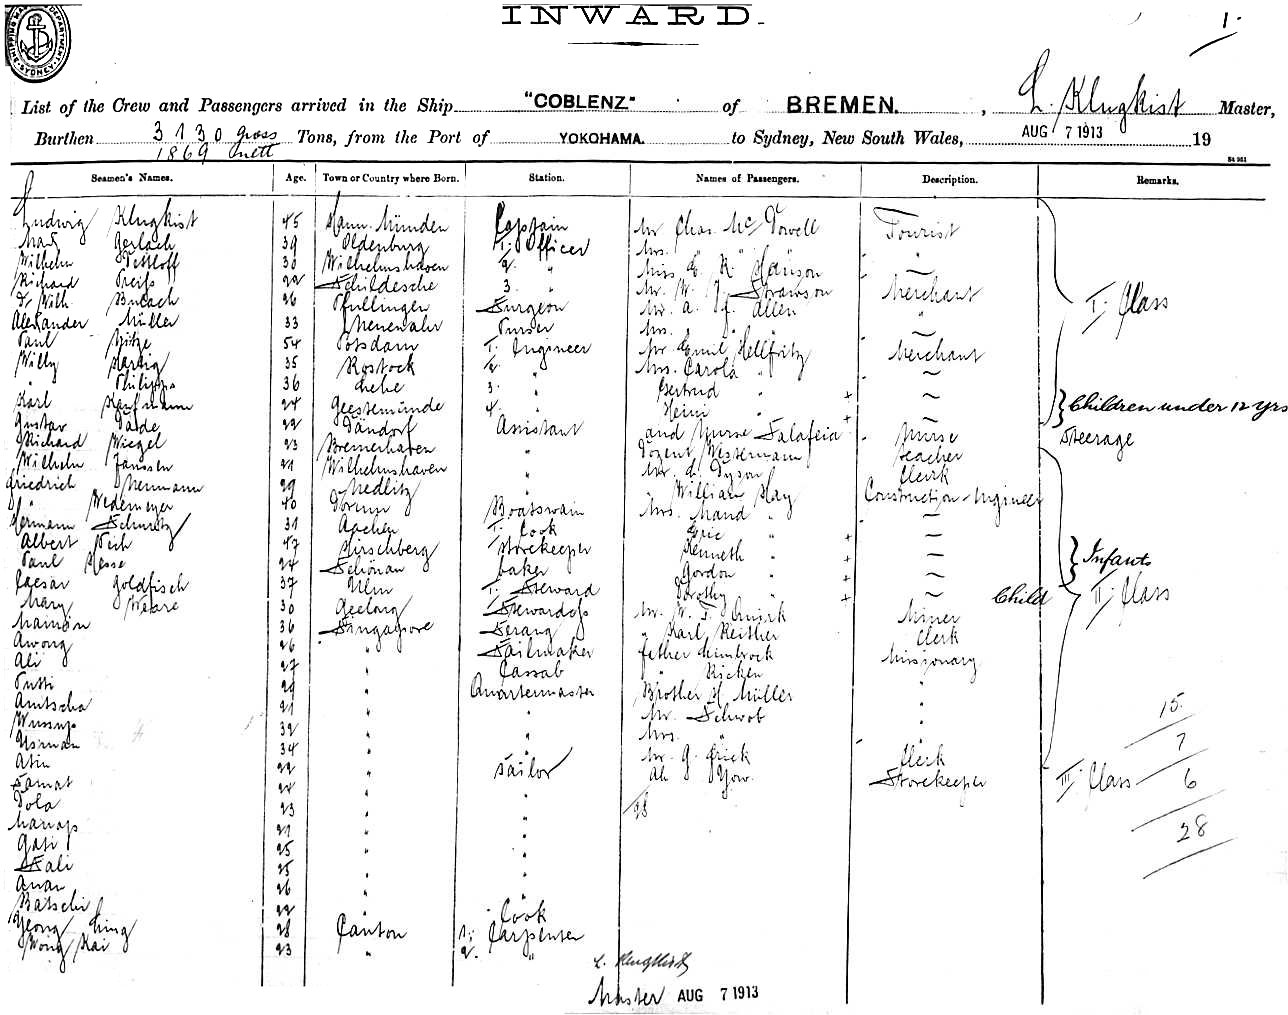 INWARD.
1.
SHIPPING MASTER'S DEPARTMENT SYDNEY
List of the Crew and Passengers arrived in the Ship "COBLENZ" of BREMEN. , L. Klugkist Master,
Burthen 3130 gross Tons, from the Port of YOKOHAMA. to Sydney, New South Wales, AUG 7 1913 19
1869 nett
Seamen's Names. Age. Town or Country where Born. Station. Names of Passengers. Description. Remarks.
Ludwig Klugkist 45 Hann. Münden Captain Mr Chas. Mc Dowell Tourist
Max Gerlach 39 Oldenburg I. Officer Mrs. "
Wilhelm Dettloff 30 Wilhelmshaven 2. " Miss E. R. Hanson
Richard Preiss 29 Schildesche 3. " Mr. W. Strawson Merchant
Dr. Wilh. 26 Pfullingen Surgeon Mr. A. J. Allen "
Alexander Müller 33 Purser Mrs. "
Paul 54 Potsdam I. Engineer Mr. Emil Hellfritz Merchant
I. Class
Willy Hartig 35 Rostock 2. " Mrs. Carola "
" Philipps 36 Lehe 3. " Gertrud " +
Karl Kaufmann 24 Geestemünde 4. " Heini " +
Children under 12 yrs
Gustav 22 Assistant and Nurse Nurse
Steerage
Richard Wiegel 23 Bremerhaven " Dozent Westermann teacher
Wilhelm Janssen 21 Wilhelmshaven " Mr. Dyson Clerk
Friedrich 29 Nedlitz " William Hay Construction-Engineer
" Wedemeyer 40 Dorum Boatswain Mrs. Maud "
Hermann Schmitz 31 Aachen I. Cook Eric " +
Albert 47 Hirschberg Storekeeper Kenneth " +
Infants
Paul Hesse 24 Schönau baker Gordon " +
Caesar Goldfisch 37 Ulm I. Steward Dorothy " + Child
II. Class
Mary Weare 30 Geelong Stewardess Mr. W. T. Quirk Miner
36 Singapore Serang " Karl Reither Clerk
Awong 26 " Sailmaker Father Missionary
Ali 27 " Cassab " "
Putti 29 " Quartermaster Brother H. Müller "
Amtscha 21 " " Mr. Schwob "
32 " " Mrs. " "
15
7
34 " " Mr. G. Clerk
Atin 22 " Sailor Ah Yow. Storekeeper
III. Class 6
Samat 24 " "
28
Dola 23 " "
28
21 " "
Gati 25 " "
Ali 25 " "
Anan 26 " "
22 " Cook
Yeong Ching 28 Canton 1. Carpenter
Wong Kai 23 " 2. "
L. Klugkist
Master AUG 7 1913